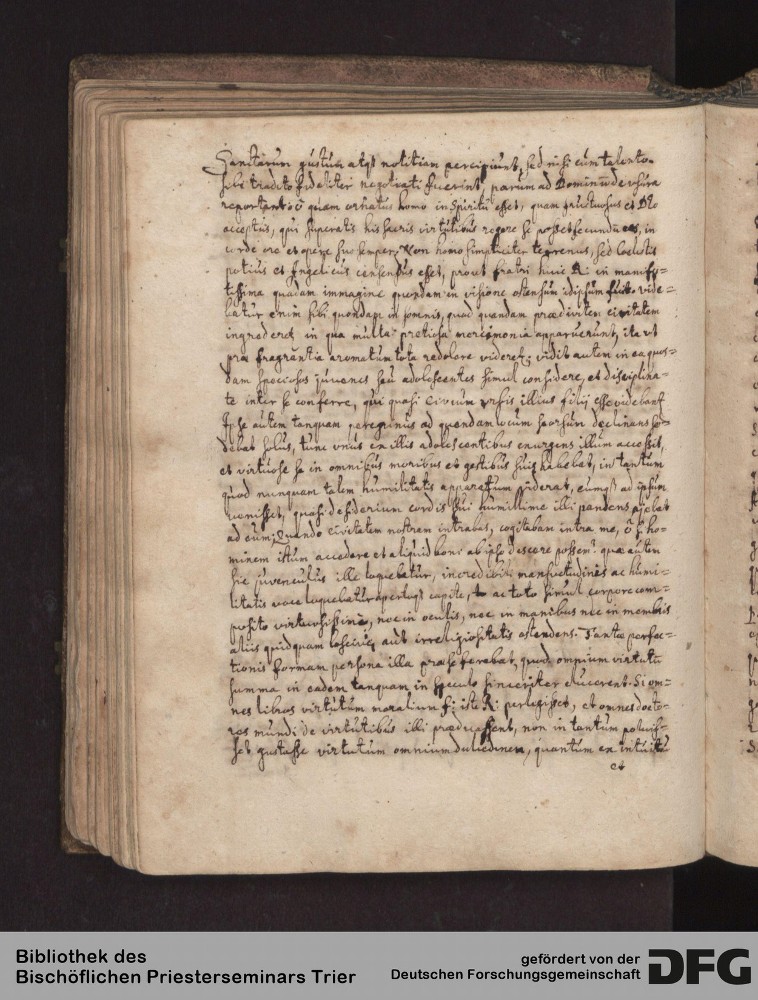 Sanitarum gustum atqs notitiam percipiunt, sed nisi cum talento
sibi tradito fideliter negotiati fuerint, parum ad Dominum de usura
reportant: ô quam ornatus homo in Spiritu esset, quam fructuosus et Deo
acceptus, qui superatis his sacris virtutibus regere se posset secundum eas, in
corde ore et opere suo semper, Non homo simpliciter terrenus, sed coelestis
potius et Angelicus censendus esset, prout fratri huic R: in manife=
tissima quadam immagine quondam in visione ostensum idipsum fuit. vide=
batur enim sibi quondam in somnis, quod quandam praedivitem civitatem
ingrederet in qua multa pretiosa mercimonia apparuerunt, ita vt
prae fragrantia aromatum tota redolere videret: vidit autem in ea quos=
dam speciosos juvenes seu adolescentes simul considere, et disciplina=
te inter se conferre, qui quasi civium urbis illius filij esse videbant
Ipse autem tanquam peregrinus ad quendam locum seorsum declinans se=
debat solus, tunc vnus ex illis adolescentibus exurgens illum accessit,
et virtuose se in omnibus moribus et gestibus suis habebat, in tantum
quod nunquam talem humilitatis apparatum viderat, cumqs ad ipsum
venisset, quasi desiderium cordis sui humillime illi pandens ajebat
ad eum; Quando civitatem nostram intrabas, cogitabam intra me, ô si ho=
minem istum accedere et aliquid boni ab ipso discere possem! quae autem
hic juvenculus ille loquebatur, incredibili mansuetudinis ac humi=
litatis voce loquebatur apertoqs capite, ac toto simul corpore com=
posito virtuosissime, nec in oculis, nec in manibus nec in membris
aliis quidquam lasciviae aut irreligiositatis ostendens. Tantae perfec=
tionis formam persona illa praeseferebat, quod omnium virtutum
summa in eadem tanquam in speculo sinceriter elucerent. Si om=
nes libros virtutum moralium fr: iste R: perlegisset, et omnes docto=
res mundi de virtutibus illi praedicassent, non in tantum potuis=
set gustasse virtutum omnium dulcedinem, quantum ex intuitu
et
Bibliothek des
Bischöflichen Priesterseminars Trier
gefördert von der
Deutschen Forschungsgemeinschaft
DFG